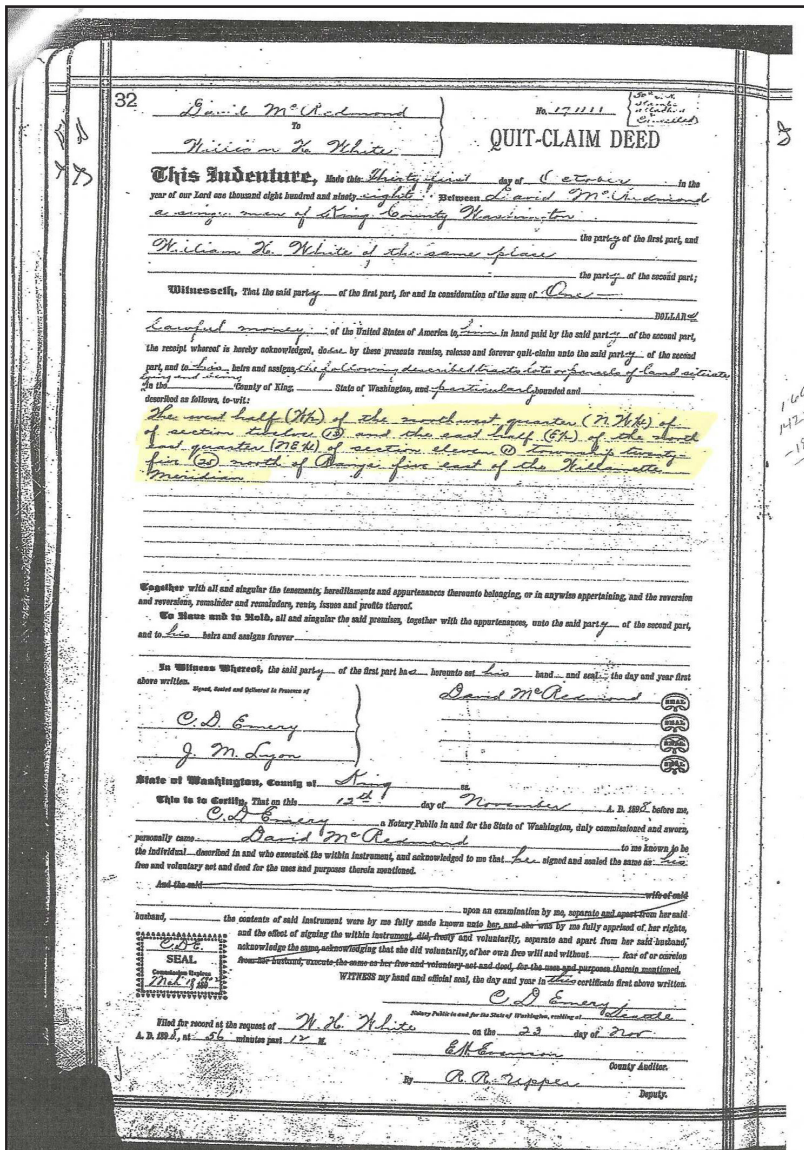 32
David McRedmond
To
William H. White
No. 171111
QUIT-CLAIM DEED
This Indenture, Made this Thirty first day of October in the
year of our Lord one thousand eight hundred and ninety eight Between David McRedmond
a single man of King County Washington
the party of the first part, and
William H. White of the same place
the party of the second part;
Witnesseth, That the said party of the first part, for and in consideration of the sum of One
DOLLAR
Lawful money of the United States of America to him in hand paid by the said party of the second part,
the receipt whereof is hereby acknowledged, does by these presents remise, release and forever quit-claim unto the said party of the second
part, and to his heirs and assigns, the following described tracts lots or parcels of land situate
lying and being
in the County of King, State of Washington, and particularly bounded and
described as follows, to-wit:
The west half (W½) of the northwest quarter (N.W¼) of
of section twelve (12) and the east half (E½) of the north
east quarter (NE¼) of section eleven 11 township twenty-
five (25) north of Range five east of the Willamette
Meridian
Together with all and singular the tenements, hereditaments and appurtenances thereunto belonging, or in anywise appertaining, and the reversion
and reversions, remainder and remainders, rents, issues and profits thereof.
To Have and to Hold, all and singular the said premises, together with the appurtenances, unto the said party of the second part,
and to his heirs and assigns forever
In Witness Whereof, the said party of the first part has hereunto set his hand and seal the day and year first
above written.
Signed, Sealed and Delivered in Presence of
David McRedmond SEAL
C. D. Emery SEAL
J. M. Lyon SEAL
SEAL
State of Washington, County of King ss.
This is to Certify, That on this 12th day of November A. D. 1898 before me,
C. D. Emery a Notary Public in and for the State of Washington, duly commissioned and sworn,
personally came David McRedmond to me known to be
the individual described in and who executed the within instrument, and acknowledged to me that he signed and sealed the same as his
free and voluntary act and deed for the uses and purposes therein mentioned.
And the said wife of said
upon an examination by me, separate and apart from her said
husband, the contents of said instrument were by me fully made known unto her, and she was by me fully apprised of her rights,
and the effect of signing the within instrument, did, freely and voluntarily, separate and apart from her said husband,
acknowledge the same, acknowledging that she did voluntarily, of her own free will and without fear of or coercion
from her husband, execute the same as her free and voluntary act and deed, for the uses and purposes therein mentioned.
C.D.E.
SEAL
Commission Expires
Mch 18
WITNESS my hand and official seal, the day and year in this certificate first above written.
C D Emery
Notary Public in and for the State of Washington, residing at Seattle
Filed for record at the request of W. H. White on the 23 day of Nov
A. D. 1898, at 56 minutes past 12 M.
County Auditor.
By R. R. Upper
Deputy.